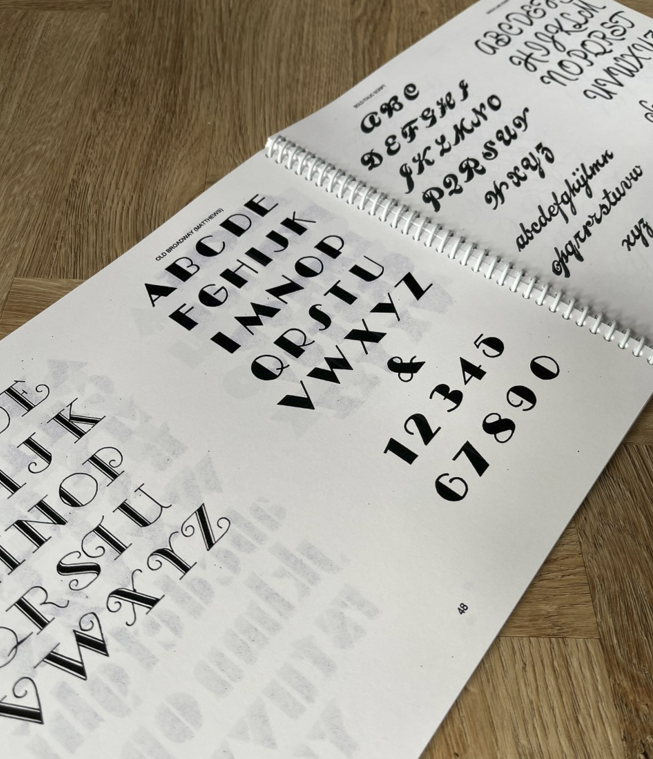 OLD BROADWAY (MATTHEWS)
ABCDE
FGHIJK
LMNOP
QRSTU
VWXYZ
&
12345
67890
48
DE
IJK
MNOP
QRSTU
VWXYZ
ABC
DEFGHI
JKLMNO
PQRSUV
WXYZ
abcdefghijklmn
opqrrstuvw
xyz
ABCDEFG
HIJKLM
NOPQRST